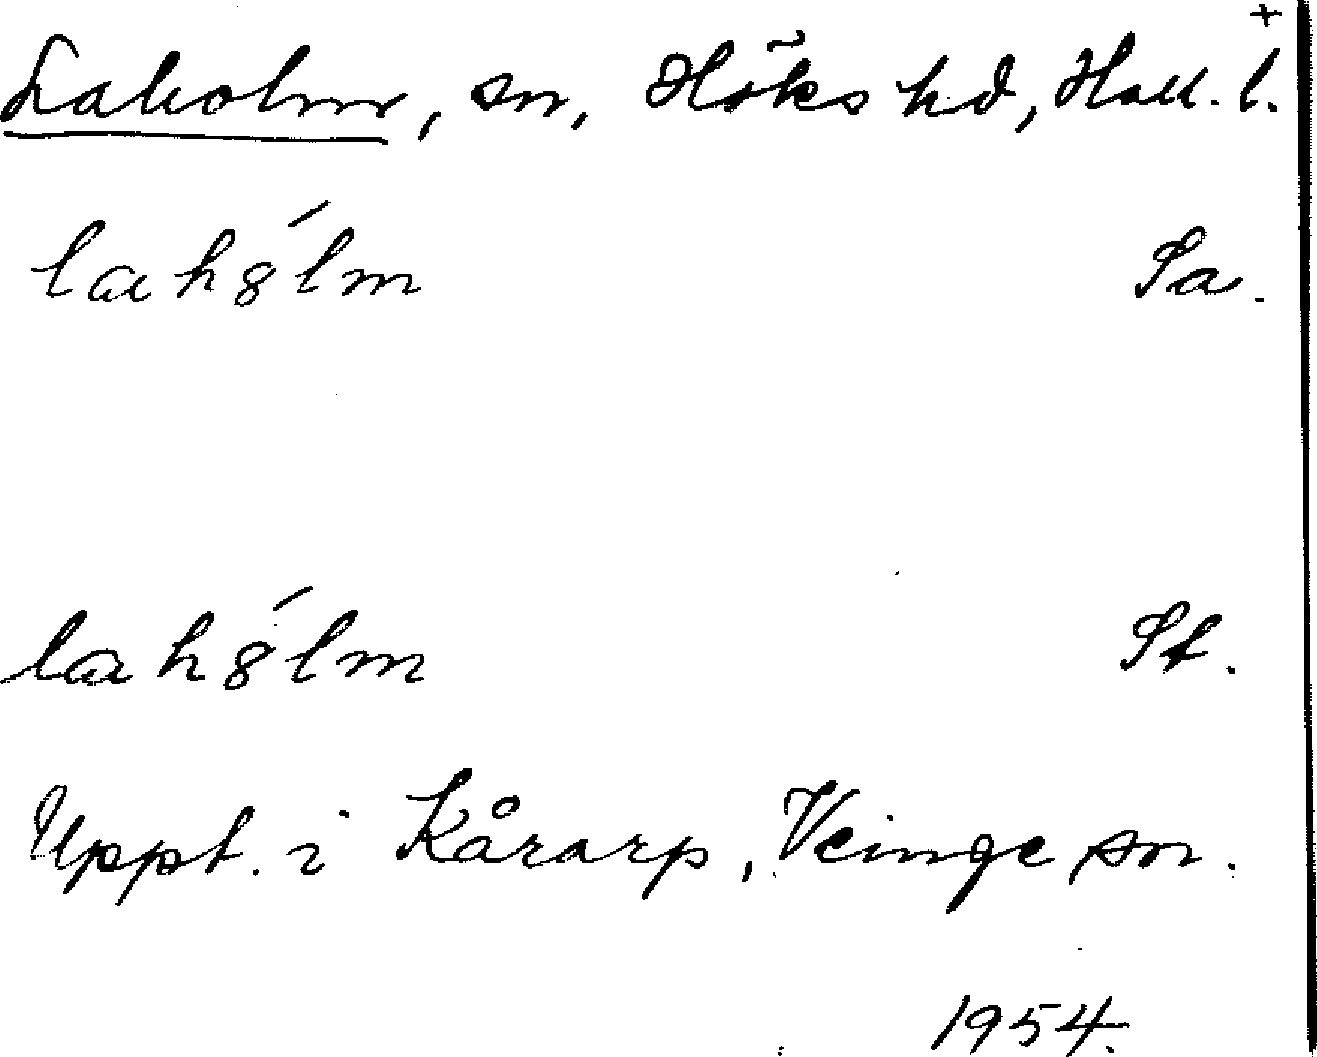 +
Laholm, sn, Höks hd, Hall. l.
lah8́lm Sa.
lah8́lm St.
Uppt. i Kårarp, Veinge sn.
1954.